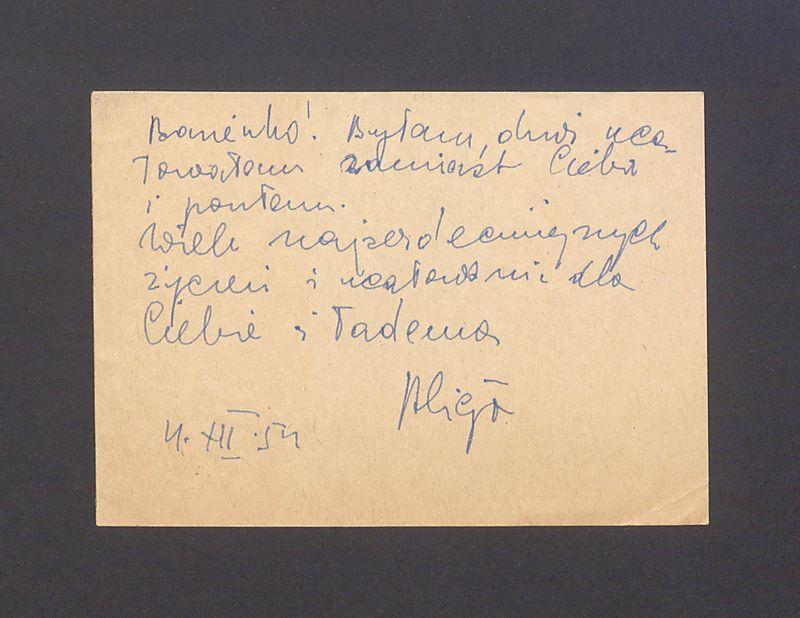 Basieńko! Byłam, drzwi uca-
łowałam zamiast Ciebie
i
Wiele najserdeczniejszych
życzeń i ucałowań dla
Ciebie i Tadeusza
Alicja
4. XII. 54